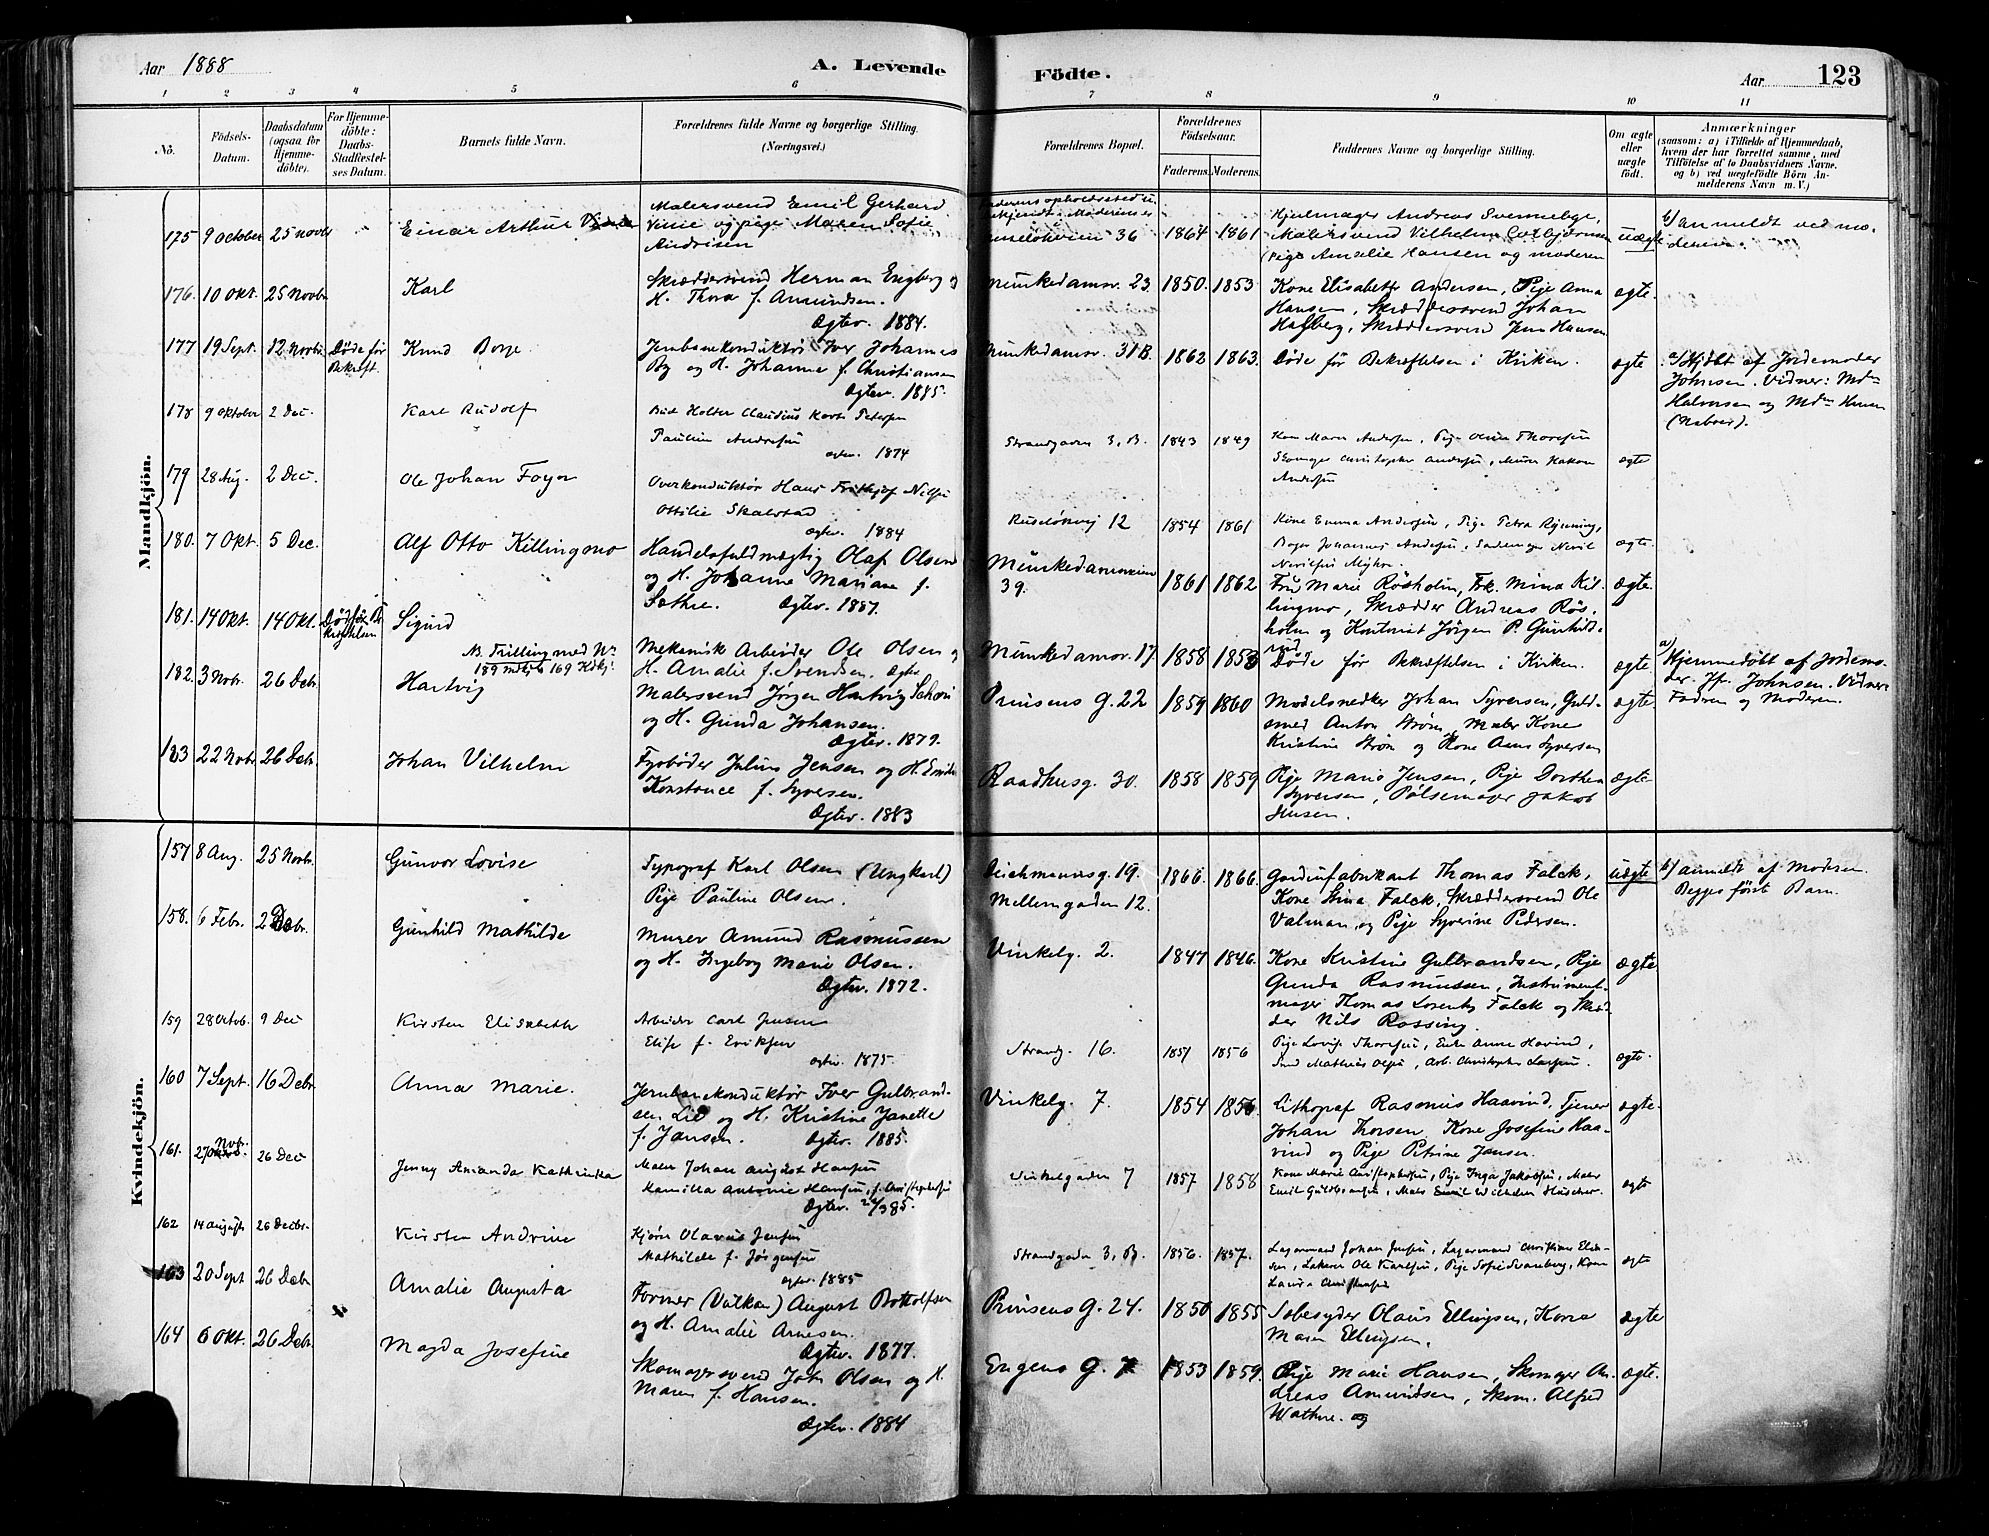 Aar 1888
A. Levende
Födte.
Aar
123
1 2 3 4 5 6 7 8 9 10 11
No.
Födsels-
Datum.
Daabsdatum
(ogsaa for
Hjemme-
döbte).
For Hjemme-
döbte:
Daabs-
Stadfæstel-
ses Datum.
Barnets fulde Navn.
Forældrenes fulde Navne og borgerlige Stilling.
(Næringsvei.)
Forældrenes Bopæl.
Forældrenes
Födselsaar.
Faderens. Moderens.
Faddernes Navne og borgerlige Stilling.
Om ægte
eller
uægte
födt.
Anmærkninger
(saasom: a) i Tilfælde af Hjemmedaab,
hvem der har forrettet samme, med
Tilföielse af to Daabsvidners Navne,
og b) ved uægtefödte Börn An-
melderens Navn m. V.)
Mandkjön.
175 9 october 25 novbr Einar Arthur
Malersvend Emil Gerhard
Vinie og pige Maren Sofie
Andrisen
36 1864 1861
Hjulmager Andreas Svennebye,
Malersvend Vilhelm
Pige Amalie Hansen og moderen
uægte
b) anmeldt ved mo-
deren.
176. 10 Okt. 25 Novbr Karl
Skræddersvend Herman Engberg og
H. Thora f. Amundsen.
Ægtev. 1884.
Munkedamsv. 23. 1850. 1853
Kone Elisabeth Andersen, Pige Anna
Hansen, Skræddersvend Johan
Halberg, Skræddersvend Jens Hansen
ægte.
177 19 Sept. 12 Novbr. Døde før
Bekræft.
Knud Borge
Jernbanekonduktör Iver Johannes
By og H. Johanne f. Christiansen
Ægtev. 1885.
Munkedamsv. 31 B. 1862 1863.
Døde før Bekræftelsen i Kirken.
ægte
a) Hjdbt af Jordemoder
Johnsen. Vidner: Mdm
Halvorsen og Mdm
(Naboer).
178 9 oktober 2 Dec. Karl Rudolf
Bud Holter Claudius Petersen
Pauline Andresen
ægtev. 1874
Strandgaden 3, B. 1843 1849
Kone Maren Andersen, Pige Oline Thoresen
Skomager Christopher Andersen, Murer Hakon
Andersen
ægte
179 28 Aug. 2 Dec. Ole Johan Foyn
Overkonduktör Hans Frithjof Nilsen
Ottilie Skalstad
ægtev. 1884
Ruseløkvej 12 1854 1861
Kone Emma Andersen, Pige Petra Rynning,
Bager Johannes Andersen, Sadelmager
ægte.
180. 7 Okt. 5 Dec. Alf Otto Killingmo
Handelsfuldmægtig Olaf Olsen
og H. Johanne Mariane f.
Sæthre. Ægtev. 1887.
Munkedamsveien
39. 1861 1862
Fru Marie Røsholm, Frk. Mina Kil-
lingmo, Skrædder Andreas Røs-
holm og Kontorist Jörgen P. Gunhild-
rud
ægte.
181. 14 Okt. 14 Okt. Sigurd
N. Trilling med No
189 mdkj & 169 Kdkj.
Mekanisk Arbeider Ole Olsen og
H. Amalie f. Svendsen. Ægtev
Munkedamsv. 17. 1858 1853
Døde før Bekræftelsen i Kirken.
ægte
a) Hjemmedöbt af Jordemo-
der Johnsen. Vidner:
Fadren og Moderen.
182. 3 Nvbr. 26 Debr Hartvig
Malersvend Jörgen Hartvig
og H. Gunda Johansen.
Ægtev. 1879.
Prinsens G. 22 1859 1860
Modelsnedker Johan Syversen, Guld-
smed Anton Strøm, Maler Kone
Kristine Strøm og Kone Anna Syversen
ægte.
183 22 Nvbr. 26 Debr. Johan Vilhelm
Fyrbøder Julius Jensen og H.
Konstance f. Syversen.
Ægtev. 1883
Raadhusg. 30. 1858 1859
Pige Marie Jensen, Pige Dorthea
Syversen, Pølsemager Jakob
Jensen.
ægte
Kvindekjön.
157 8 Aug. 25 Novbr. Gunvor Lovise
Typograf Karl Olsen (Ungkarl)
Pige Pauline Olsen.
Deichmannsg. 19.
Mellemgaden 12. 1866. 1866.
Gardinfabrikant Thomas Falck,
Kone Stina Falck, Skræddersvend Ole
Valman, og Pige Syverine Pedersen.
uægte
b) anmeldt af Modren.
Begges först Barn.
158. 6 Febr. 2 Debr. Gunhild Mathilde
Murer Amund Rasmussen
og H. Ingeborg Marie Olsen.
Ægtev. 1872.
Vinkelg. 2. 1847 1846.
Kone Kristine Gulbrandsen, Pige
Gunda Rasmussen, Instrument-
mager Thomas Lorents Falck og Skræ-
der Nils Rossing.
ægte
159 28 octob. 9 Dec Kirsten Elisabeth
Arbeider Carl Jensen
Elise f. Eriksen
ægtev. 1875.
Strandg. 16. 1851 1856
Pige Lovise Thoresen, Enke Anne Havind,
Smed Mathias Olsen, Arb. Christopher Larsen.
ægte.
160 7 Sept. 16 Debr. Anna Marie.
Jernbanekonduktör Iver Gulbrand-
sen Lie og H. Kristine Janette
f. Jansen. Ægtev. 1885.
Vinkelg. 7. 1854 1856
Lithograf Rasmus Haavind, Tjener
Johan Thorsen, Kone Josefine Haa-
vind og Pige Petrine Jansen.
ægte.
161. 27 Nov. 26 Dec Jenny Amanda Kathinka
Maler Johan August Hansen
Kamilla Antonie Hansen, f. Christophersen
Ægtev. 2/985.
Vinkelgaden 7 1857 1858
Kone Marie Christophersen, Pige Inga Jakobsen, Maler
Emil Guldbrandsen, Maler Emil Wilhelm Hüscher.
ægte
162 14 august 26 Decbr. Kirsten Andrine
Kjører Olavus Jensen
Mathilde f. Jørgensen
ægtev. 1885
Strandgaden 3, B. 1856. 1857.
Lagermand Johan Jensen, Lagermand Christian
Ole Karlsen, Pige Sofie Svanberg, Kone
Laura Christensen
ægte
163 20 Sept 26 Debr Amalie Augusta
Former (Vulkan) August Botolfsen
og H. Amalie Arnesen.
Ægtev. 1877.
Prinsens G. 24. 1850 1855
Sæbesyder Olaus Ellingsen, Kone
Maren Ellingsen.
ægte
164 6 Okt. 26 Debr. Magda Josefine
Skomagersvend John Olsen og H.
Maren f. Hansen.
Ægtev. 1884
Engens G. 7 1853 1859.
Pige Marie Hansen, Skomager An-
dreas Amundsen, Skom. Alfred
Wathne. og
ægte.